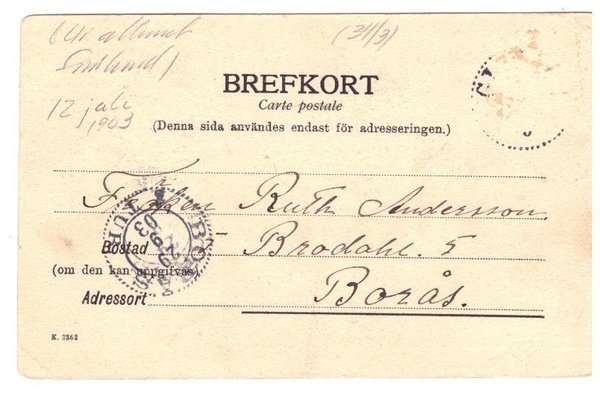 (Ur albumet
Småland)
(34/3)
12 juli
1903
BREFKORT
Carte postale
(Denna sida användes endast för adresseringen.)
Fröken Ruth Andersson
Bostad
Brodahl. 5
(om den kan uppgifvas)
Adressort
Borås.
K. 3362